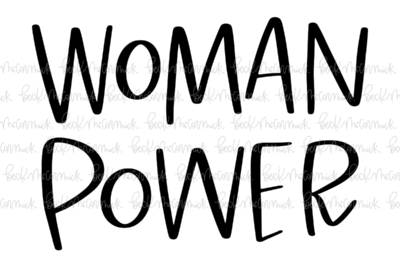 WOMAN
POWER